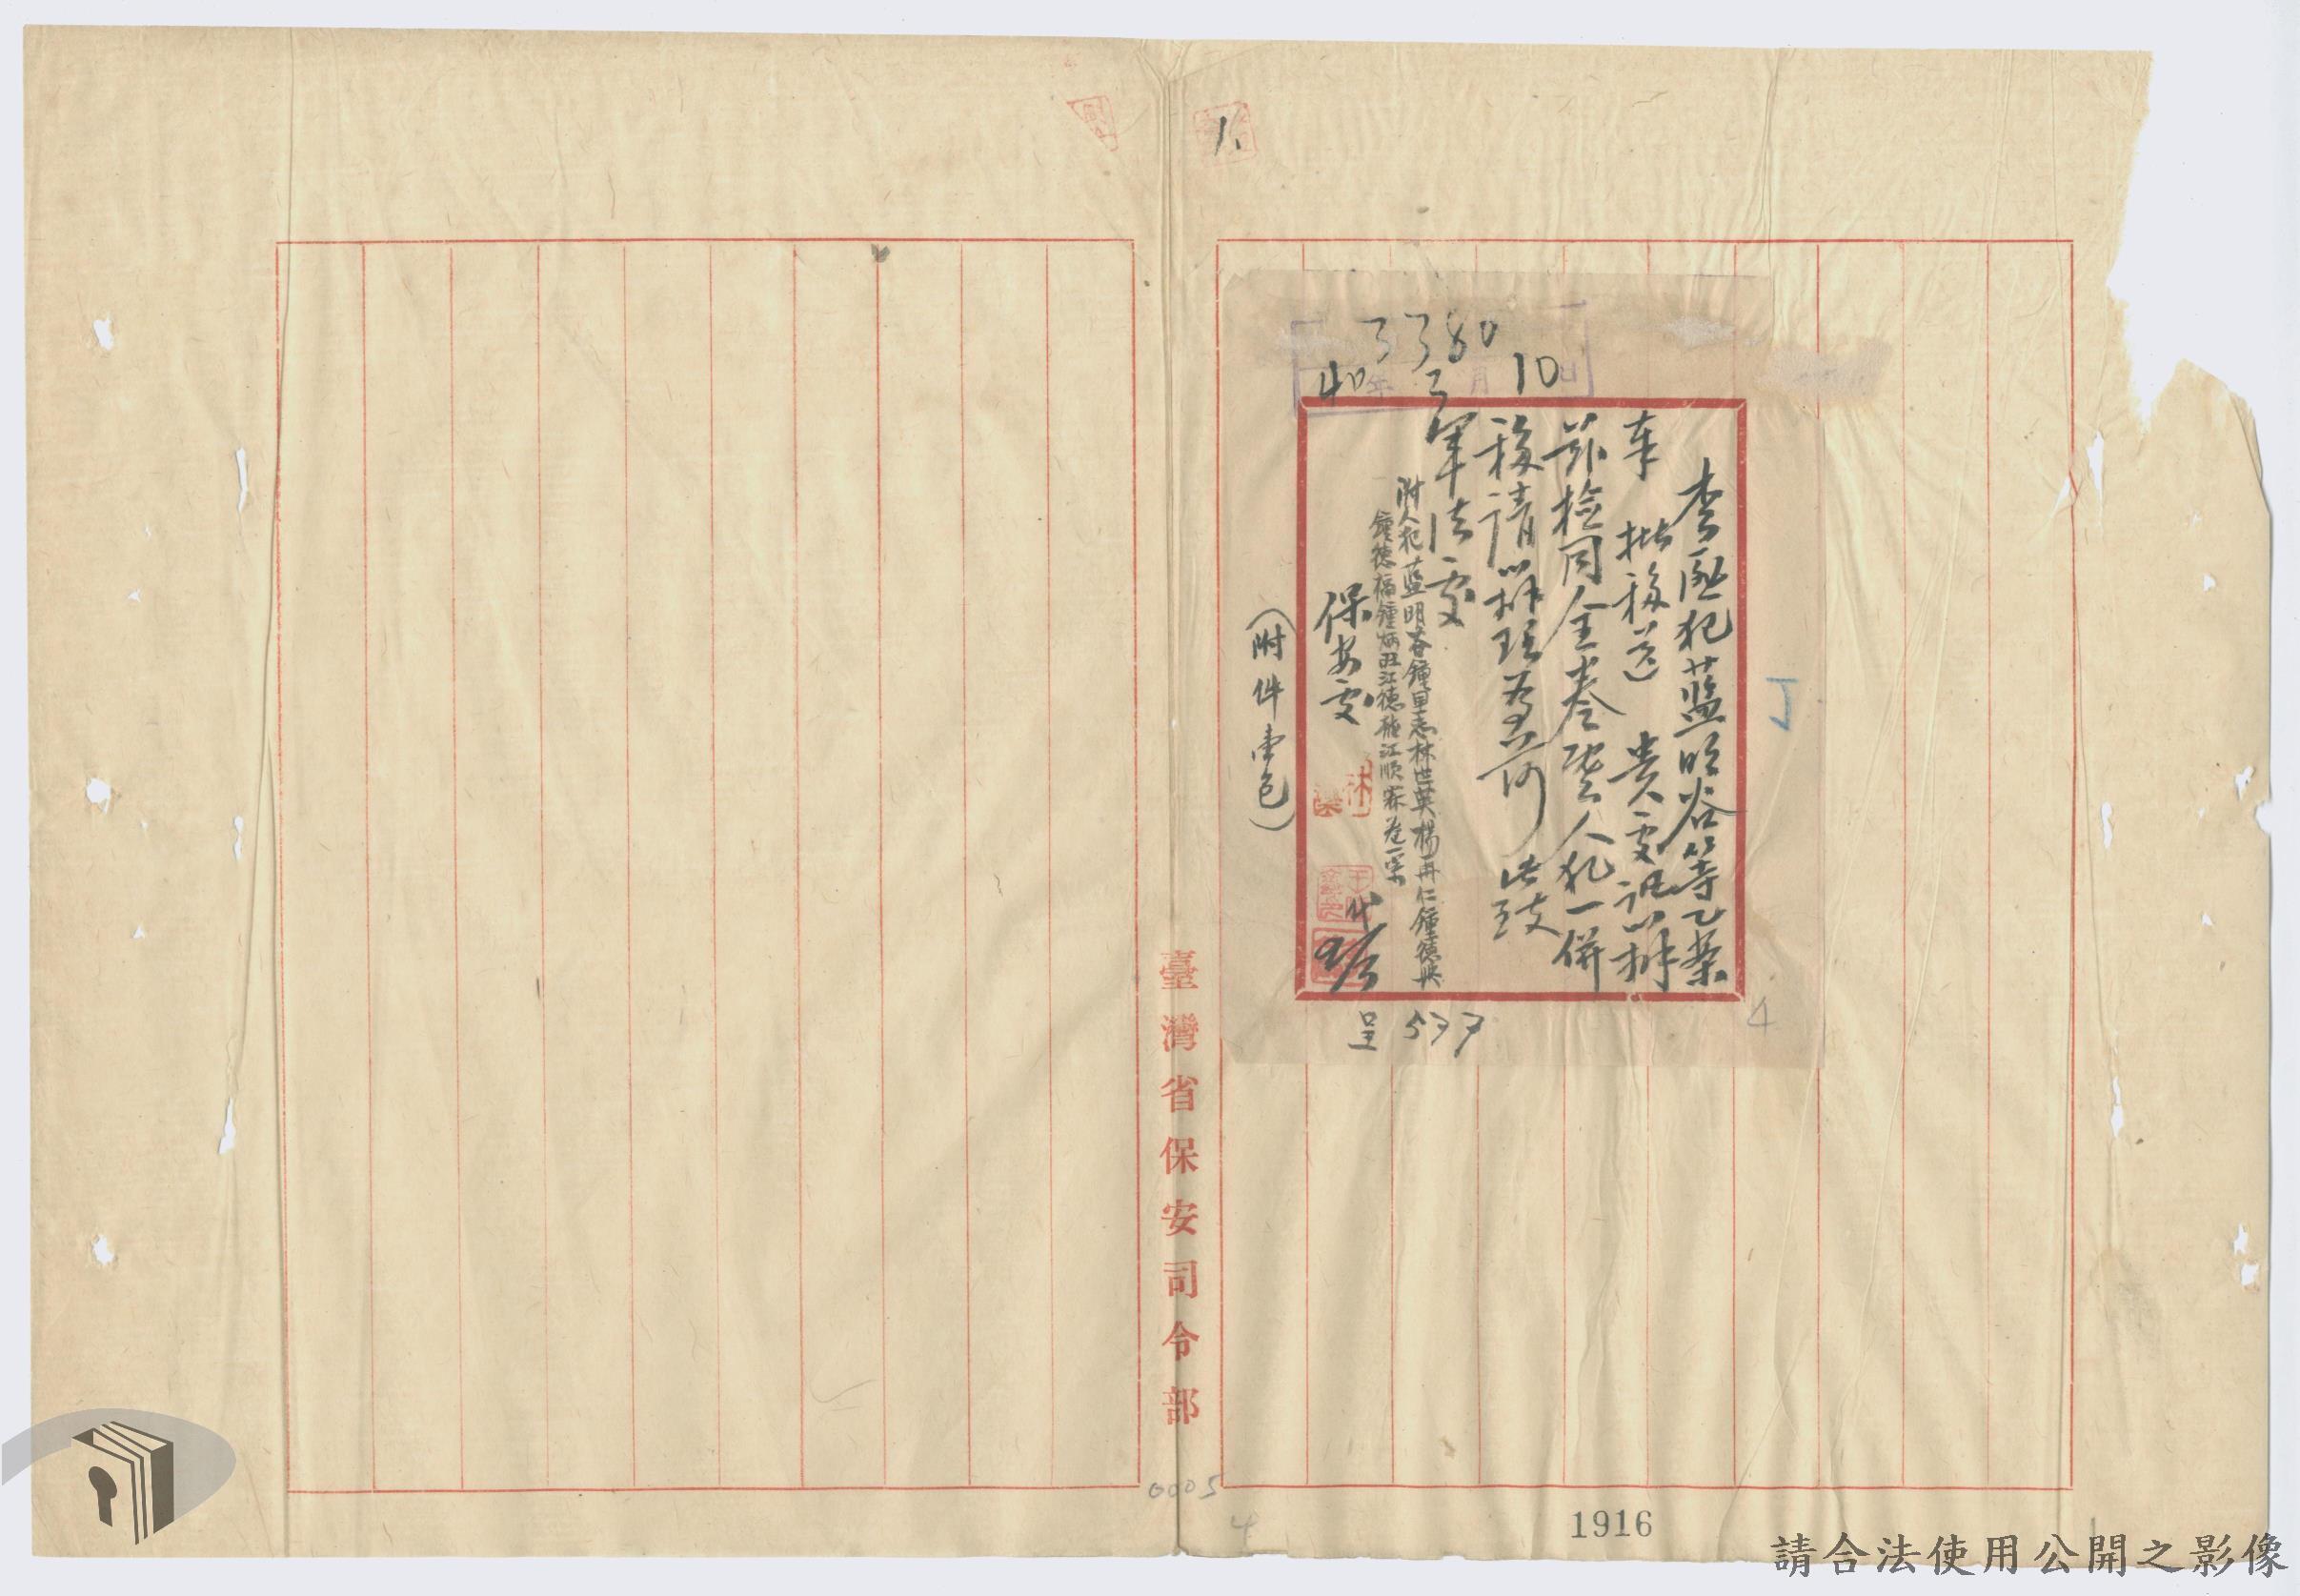 1、
3380
40年3月10日
查匪犯藍明谷等乙案
奉 批移送 貴處訊辦
茲檢同全卷暨人犯一併
移請訊辦理為荷 此致
軍法處
附人犯藍明谷鍾里志林世英楊再仁鍾德興
鍾德福鍾炳丑江德龍江順 卷一宗
保安處
代
(附件壹包)
呈 577
丁
4
臺灣省保安司令部
0005
4
1916
請合法使用公開之影像